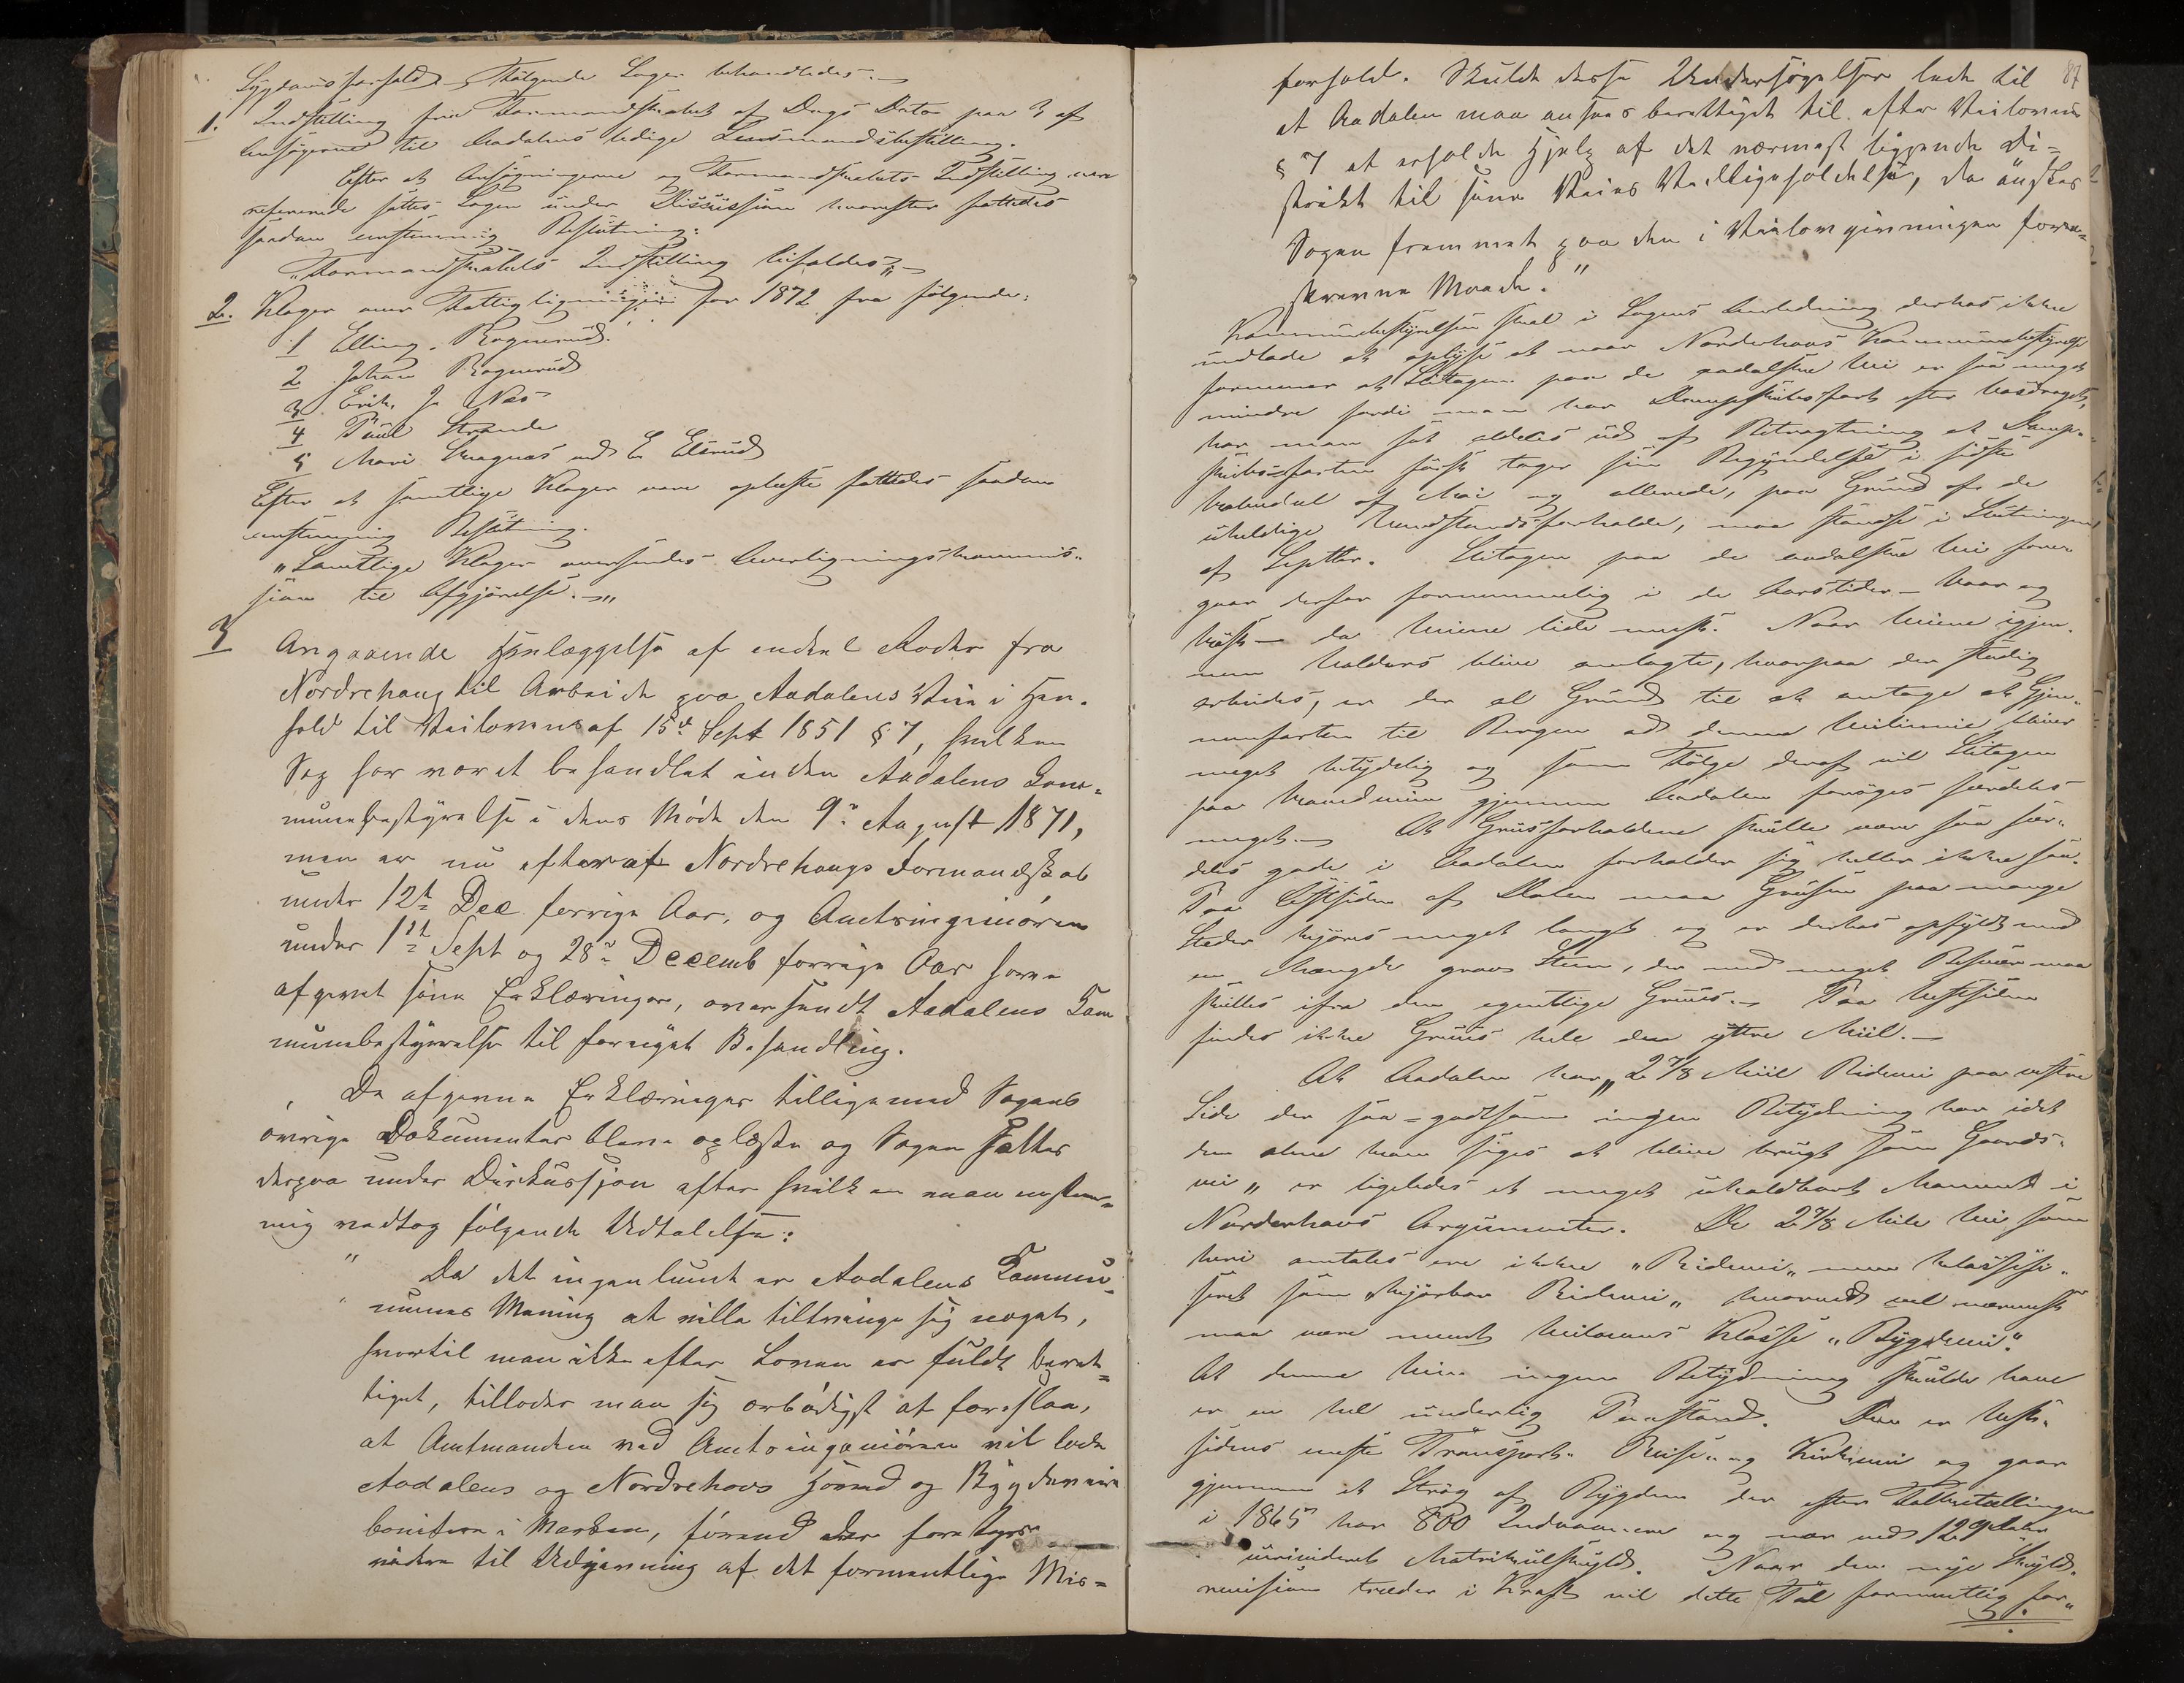 Sygdomsforfald. Følgende Sager behandledes.
1. Indstilling fra Formandskabet af Dags Dato paa 3 af
Ansøgerne til Aadalens ledige Lensmandsbestilling.
Efter at Ansøgningerne og Formandskabets Indstilling vare
refererede sattes Sagen under Diskussion hvorefter fattedes
saadan enstemmig Beslutning:
"Formandskabets Indstilling bifaldes".
2. Klager over Fattigligningen for 1872 fra følgende:
1 Elling Rognerud.
2 Johan Rognerud
3 Erik J. Næs
4 Paul Strande
5 Mari Skagnæs ved E Elsrud
Efter at samtlige Klager vare oplæste fattedes saadan
enstemmig Beslutning.
"Samtlige Klager oversendes Overligningskommis-
sion til Afgjørelse.—"
3 Angaaende Henlæggelse af endeel Roder fra
Nordrehaug til Arbeide paa Aadalens Vei i Hen-
hold til Veiloven af 15de Sept 1851 § 7, hvilken
Sag har været behandlet inden Aadalens Kom-
munebestyrelse i dens Møde den 9de August 1871,
men er nu efterat Nordrehaugs Formandskab
under 12te Dec forrige Aar, og Amtsingeniøren
under 1ste Sept og 28de Decemb forrige Aar have
afgivet sine Erklæringer, oversendt Aadalens Kom
munebestyrelse til fornyet Behandling.
De afgivne Erklæringer tilligemed Sagens
øvrige Dokumenter bleve oplæste og Sagen sattes
derpaa under Diskussjon efter hvilken man enstem-
mig vedtog følgende Udtalelse:
" Da det ingenlunde er Aadalens Kommu-
nunes Mening at ville tiltvinge sig noget,
hvortil man ikke efter Loven er fuldt beret-
tiget, tillader man sig ærbødigst at foreslaa,
at Amtmanden ved Amtsingeniøren vil lade
Aadalens og Nordrehovs Hoved og Bygdeveie
bonitere i Marken, førend der foretages
videre til Udjævning af det formentlige Mis-
87
forhold. Skulde disse Undersøgelser lede til
at Aadalen maa ansees berettiget til efter Veilovens
§ 7 at erholde Hjelp af det nærmest liggende Di-
strikt til sine Veies Vedligeholdelse, da ønskes
Sagen fremmet paa den i Veilovgivningen fore-
skrevne Maade."
Kommunebestyrelsen skal i Sagens Anledning derhos ikke
undlade at oplyse at naar Norderhovs Kommunebestyrelse
formener at Slitagen paa de aadalske Veie er saa meget
mindre fordi man har Dampskibsfart efter Vasdraget,
har man sat aldeles ud af Betragtning at Damp-
skibsfarten først tager sin Begyndelse i sidste
Halvdeel af Mai og allerede, paa Grund af de
uheldige Vandstandsforholde, maa standse i Slutningen
af Septbr. Slitagen paa de aadalske Veie fore-
gaar derfor fornemmelig i de Aarstider — Vaar og
Høst — da Veiene lide mest. Naar Veiene igjen-
nem Valders blive anlagte, hvorpaa der stadig
arbeides, er der al Grund til at antage at Gjen-
nemfarten til Bergen ad denne Veilinie bliver
meget betydelig og som Følge deraf vil Slitagen
paa Hovedveien gjennem Aadalen forøges særdeles
meget.— At Gruusforholdene skulle være saa sær-
deles gode i Aadalen forholder sig heller ikke saa.
Paa Østsiden af Dalen maa Grusen paa mange
Steder kjøres meget langt og er derhos opfyldt med
en Mængde grov Steen, der med meget Besvær maa
skilles ifra den egentlige Gruus.— Paa Vestsiden
findes ikke Gruus hele den yttre Miil.—
At Aadalen har "2 7/8 Miil Ridevei paa vestre
Side der saa-godtsom ingen Betydning har idet
den alene kan siges at blive brugt som Gaards-
vei" er ligeledes et meget uholdbart Moment i
Norderhovs Argumenter. De 2 7/8 Mile Vei som
heri omtales ere ikke "Ridevei" men klassifi-
seret som "kjørbar Ridevei" hvormed vel nærmest
maa være meent Veilovens Klasse "Bygdevei".
At denne Vei ingen Betydning skulde have
er en heel underlig Paastand. Den er Vest-
sidens meste Transport- Reise- og Kirkevei og gaar
gjennem et Strøg af Bygden der efter Folketællingen
i 1865 har 800 Indvaanere og nær ved 129 Daler
urevideret Matrikulskyld. Naar den nye Skyld-
revision træder i Kraft vil dette Tal formentlig for-